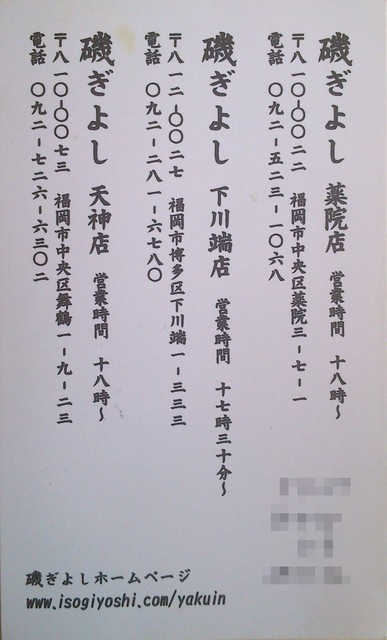 磯ぎよし 薬院店 営業時間 十八時〜
〒八一〇-〇〇二二 福岡市中央区薬院三-七-一
電話 〇九二-五二三-一〇六八
磯ぎよし 下川端店 営業時間 十七時三十分〜
〒八一二-〇〇二七 福岡市博多区下川端一-三三三
電話 〇九二-二八一-六七八〇
磯ぎよし 天神店 営業時間 十八時〜
〒八一〇-〇〇七三 福岡市中央区舞鶴一-九-二三
電話 〇九二-七二六-六三〇二
磯ぎよしホームページ
www.isogiyoshi.com/yakuin